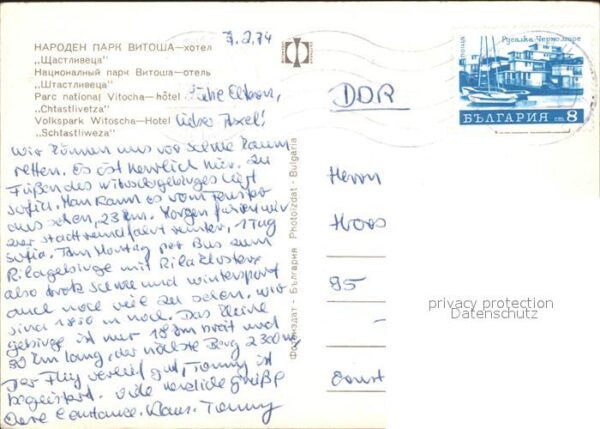 7.2.74
НАРОДЕН ПАРК ВИТОША—хотел
„Щастливеца"
Национальный парк Витоша—отель
„Штастливеца"
Parc national Vitocha—hôtel
„Chtastlivetza"
Volkspark Witoscha—Hotel
„Schtastliweza"
Liebe Eltern,
lieber Axel!
Wir können uns vor Schnee kaum
retten. Es ist herrlich hier. Zu
Füßen des Witoschagebirges liegt
Sofia. Man kann es vom Fenster
aus sehen, 23 km. Morgen fahren wir
zur Stadtrundfahrt runter, 1 Tag
Sofia. Am Montag per Bus zum
Rilagebirge mit Rilakloster
also trotz Schnee und Wintersport
auch noch viel zu sehen. Wir
sind 1850 m hoch. Das kleine
Gebirge ist nur 18 km breit und
90 km lang, der höchste Berg 2300 m.
Der Flug verlief gut, Tommy ist
begeistert. Viele herzliche Grüße
Eure Constance, Klaus, Tommy
Фотоиздат - България Photoizdat - Bulgaria
поща
Русалка Черноморе
БЪЛГАРИЯ ст. 8
DDR
Herrn
95
privacy protection
Datenschutz